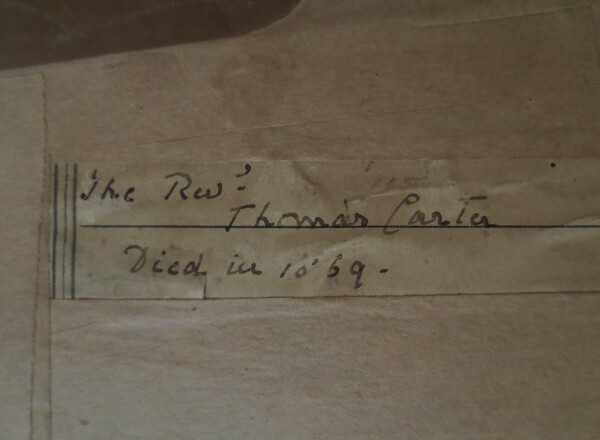 The Revd.
Thomas Carter
Died in 1869.